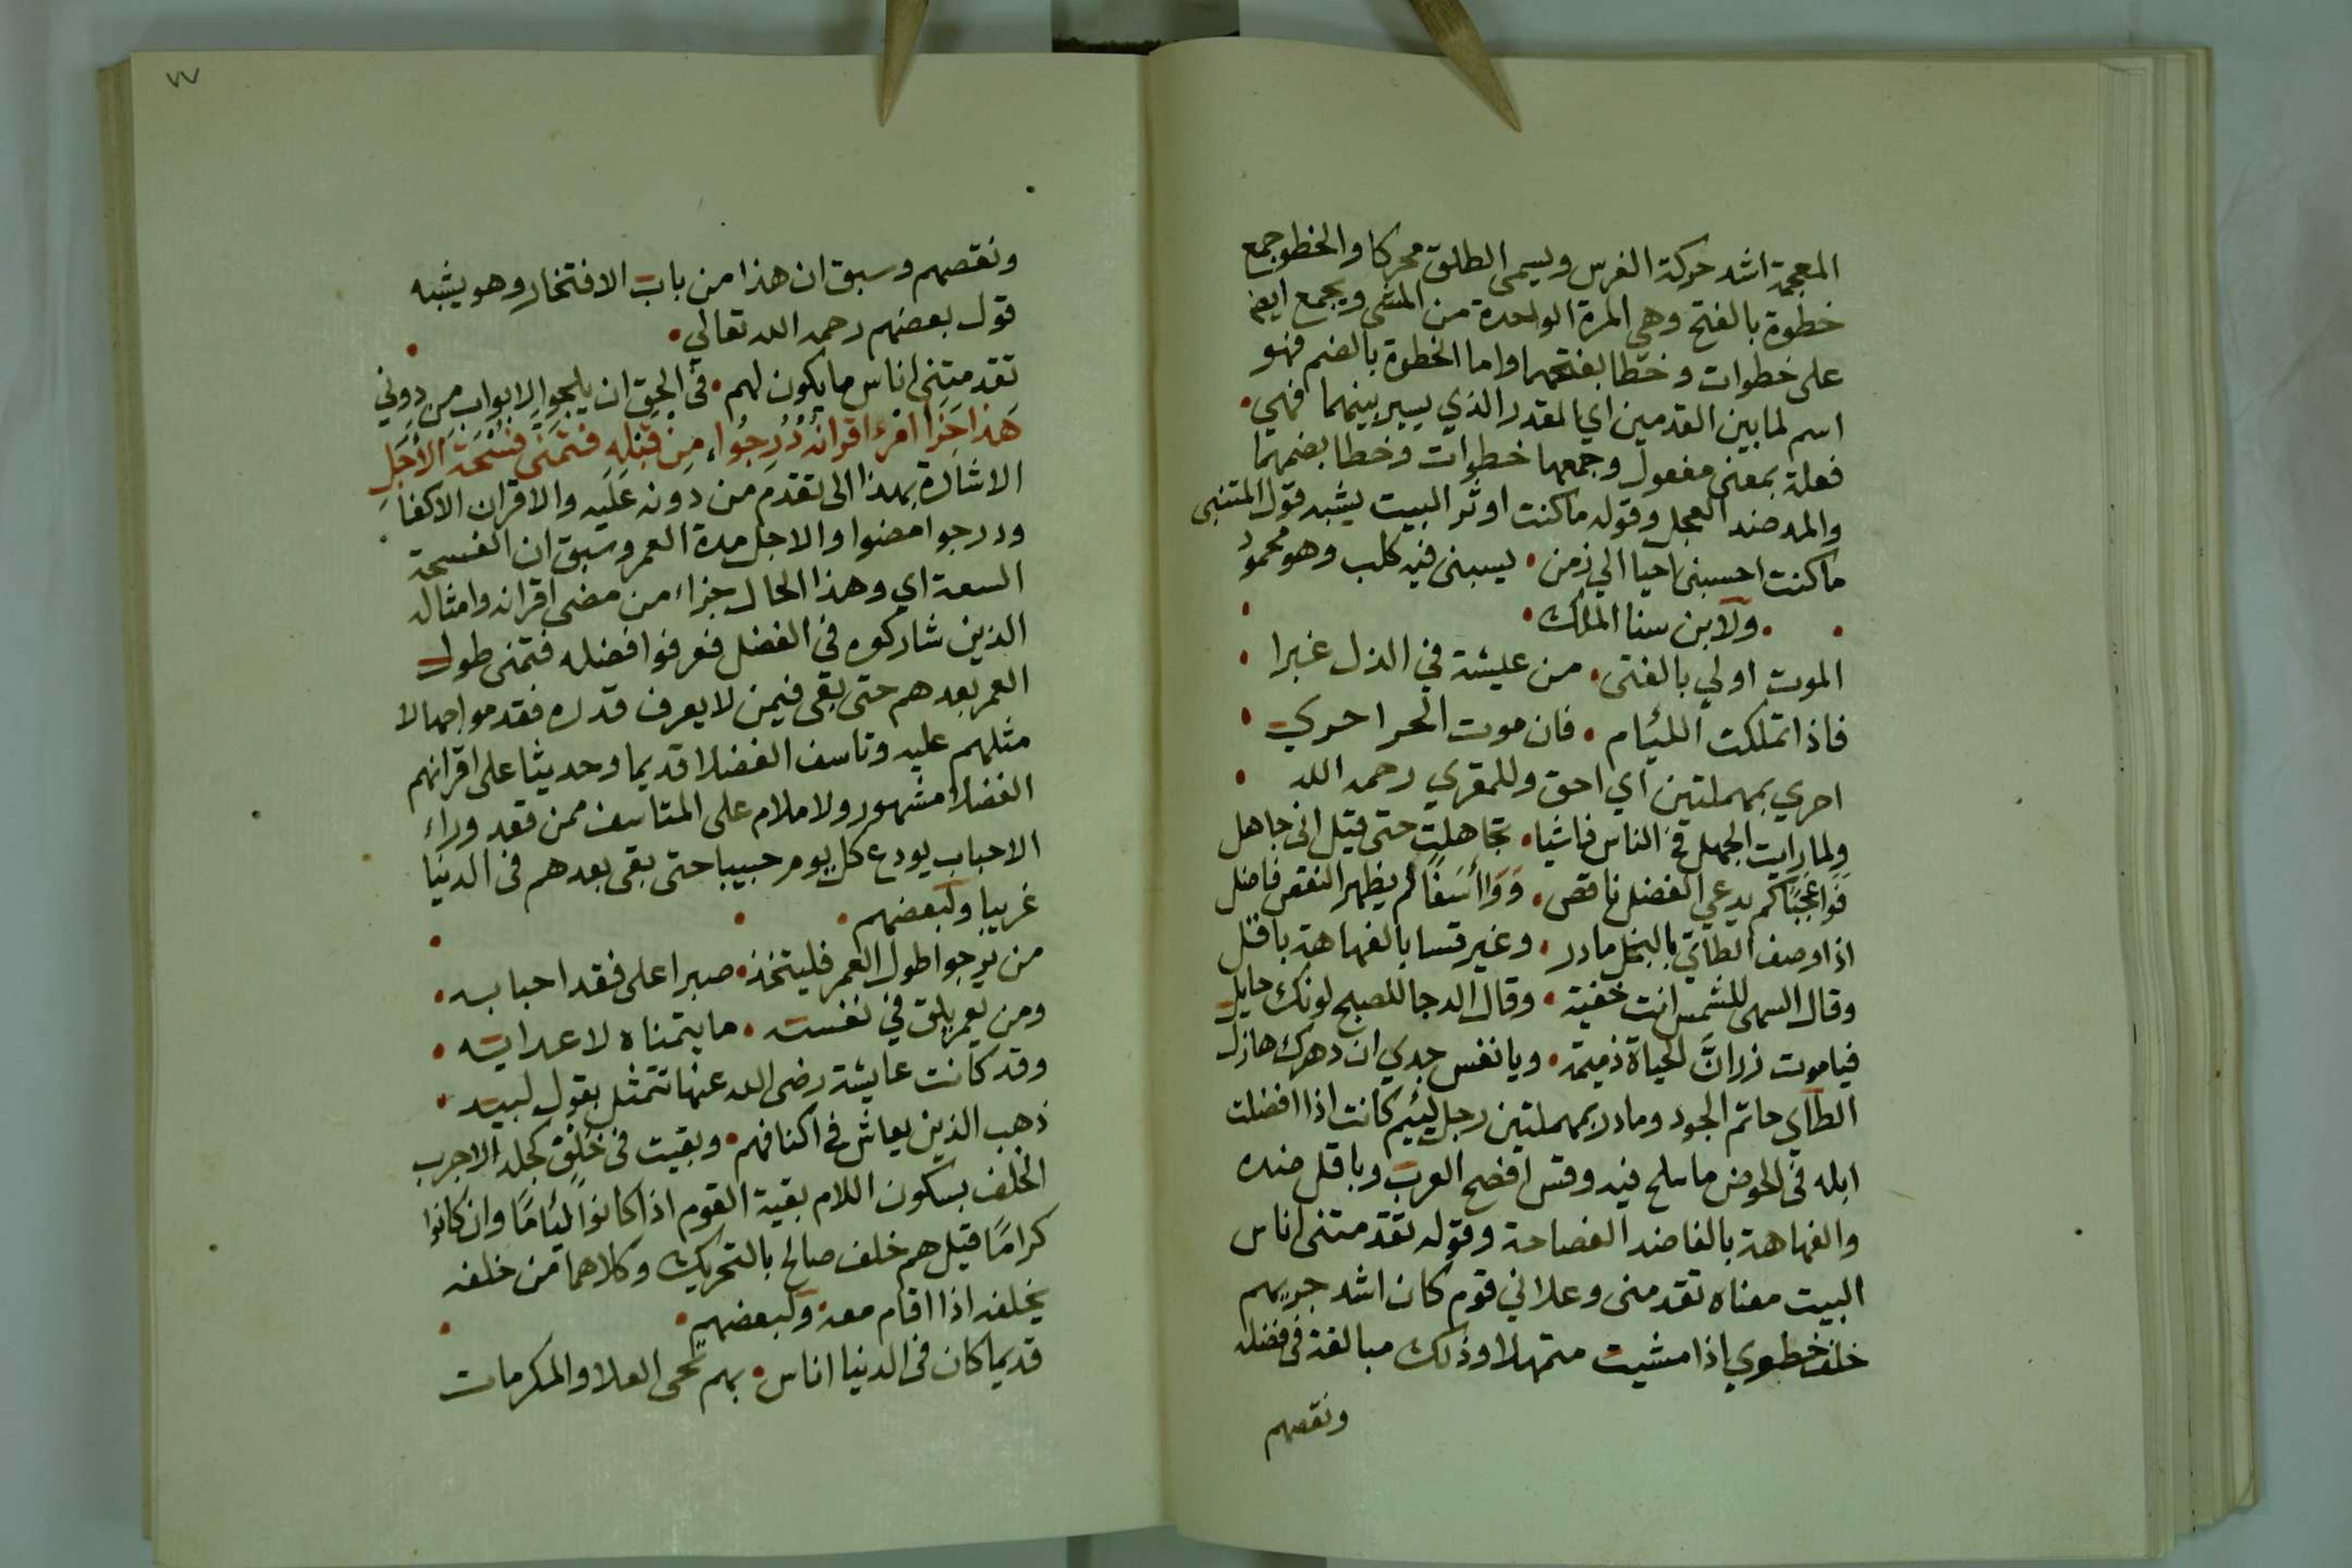 المعجمة اشد حركة الفرس ويسمى الطلق محركا والخطو جمع
خطوة بالفتح وهي المرة الواحدة من المشي ويجمع ايضا
على خطوات وخطا بفتحهما واما الخطوة بالضم فهو
اسم لما بين القدمين اي المقدر الذي يسير بينهما فهي
فعلة بمعنى مفعول وجمعها خطوات وخطا بضمهما
والمه ضد العجل وقوله ما كنت اوثر البيت يشبه قول المتنبي
ما كنت احسبني احيا الي زمن • يسبني فيه كلب وهو محمود
• ولابن سنا الملك •
الموت اولي بالفتى • من عيشة في الذل غبرا •
فاذا تملكت الليام • فان موت الحر احري •
احري بمهملتين اي احق وللمقري رحمه الله •
ولما رايت الجهل في الناس فاشيا • تجاهلت حتى قيل اني جاهل
فَوَا عَجَبًا كم يدعي الفضل ناقص • وَوَا أَسَفًا كم يظهر النقص فاضل
اذا وصف الطائي بالبخل مادر • وعير قسا بالفهاهة باقل
وقال السهى للشمس انت خفية • وقال الدجا للصبح لونك حايل
فيا موت زر انَّ الحياة ذميمة • ويا نفس جدي ان دهرك هازل
الطاي حاتم الجود ومادر بمهملتين رجل لييم كانت اذا افضلت
ابله في الحوض ما سلح فيه وقس افصح العرب وباقل ضده
والفهاهة بالفا ضد الفصاحة وقوله تقدمتني اناس
البيت معناه تقدمني وعلاني قوم كان اشد جريهم
خلف خطوي اذا مشيت متمهلا وذلك مبالغة في فضله
ونقصهم
٧٧
ونقصهم وسبق ان هذا من باب الافتخار وهو يشبه
قول بعضهم رحمه الله تعالي •
تقدمتني اناس ما يكون لهم • في الحق ان يلجوا الابواب من دوني
هَذَا جَزَا امْرِءٍ اقرانُهُ دُرِجُوا • مِنْ قَبْلِهِ فتمنى فُسْحَةَ الأَجَلِ
الاشارة بهذا الى تقدم من دونه عَلَيه والاقران الاكفا
ودرجوا مضوا والاجل مدة العمر وسبق ان الفسحة
السعة اي وهذا الحال جزاء من مضى اقرانه وامثاله
الذين شاركوه في الفضل فعرفوا فضله فتمنى طول
العمر بعدهم حتى بقى فيمن لا يعرف قدره فقدموا جهالا
مثلهم عليه وتاسف الفضلا قديما وحديثا على اقرانهم
الفضلا مشهور ولا ملام على المتاسف ممن فقد وراء
الاحباب يودع كل يوم حبيبا حتى بقى بعدهم في الدنيا
غريبا ولبعضهم •
من يرجوا طول العمر فليتخذ • صبرا على فقد احبابه •
ومن يعمر يلق في نفسه • ما يتمناه لاعدايه •
وقد كانت عايشة رضي الله عنها تتمثل بقول لبيد •
ذهب الذين يعاش في اكنافهم • وبقيت في خَلْفٍ كجلد الاجرب
الخلف بسكون اللام بقية القوم اذا كانوا ليامًا وان كانوا
كرامًا قيل هم خلف صالح بالتحريك وكلاهما من خلفه
يخلفه اذا اقام معه • ولبعضهم •
قديما كان في الدنيا اناس • بهم تحى العلا والمكرمات